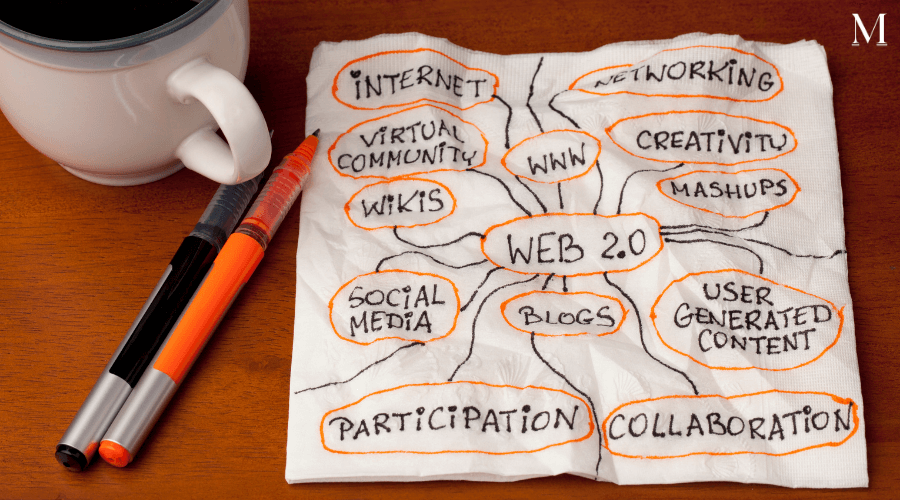 M
INTERNET
NETWORKING
VIRTUAL
COMMUNITY
WWW
CREATIVITY
WIKIS
MASHUPS
WEB 2.0
SOCIAL
MEDIA
BLOGS
USER
GENERATED
CONTENT
PARTICIPATION
COLLABORATION